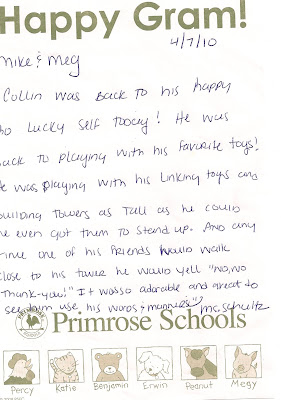 Happy Gram!
4/7/10
Mike & Meg
Collin was back to his happy
go lucky self today! He was
back to playing with his favorite toys!
He was playing with his linking toys and
building towers as tall as he could
he even got them to stand up. And any
time one of his friends would walk
close to his tower he would yell "no, no
Thank-you!" It was so adorable and great to
see him use his words & manners" mc. Schultz
Primrose Schools
Percy Katie Benjamin Erwin Peanut Megy